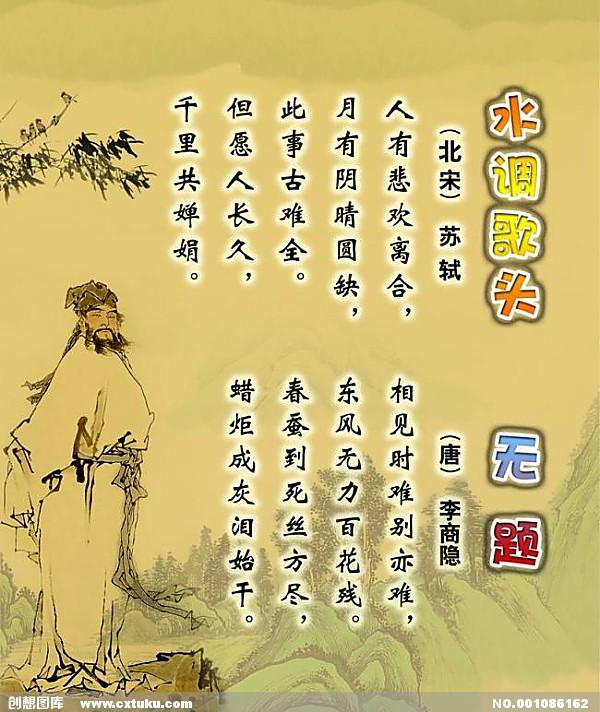 水调歌头
（北宋）苏轼
人有悲欢离合，
月有阴晴圆缺，
此事古难全。
但愿人长久，
千里共婵娟。
无题
（唐）李商隐
相见时难别亦难，
东风无力百花残。
春蚕到死丝方尽，
蜡炬成灰泪始干。
创想图库 www.cxtuku.com
NO.001086162